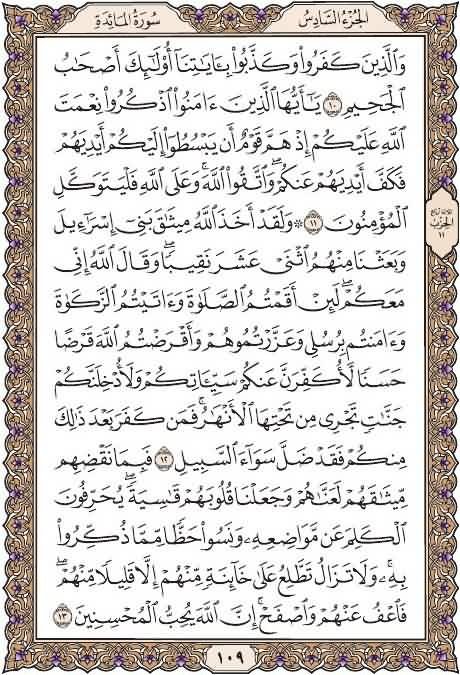 الجزء السادس
سورة المائدة
وَالَّذِينَ كَفَرُوا۟ وَكَذَّبُوا۟ بِـَٔايَٰتِنَآ أُو۟لَٰٓئِكَ أَصْحَٰبُ
ٱلْجَحِيمِ ١٠ يَٰٓأَيُّهَا ٱلَّذِينَ ءَامَنُوا۟ ٱذْكُرُوا۟ نِعْمَتَ
ٱللَّهِ عَلَيْكُمْ إِذْ هَمَّ قَوْمٌ أَن يَبْسُطُوٓا۟ إِلَيْكُمْ أَيْدِيَهُمْ
فَكَفَّ أَيْدِيَهُمْ عَنكُمْ ۖ وَٱتَّقُوا۟ ٱللَّهَ ۚ وَعَلَى ٱللَّهِ فَلْيَتَوَكَّلِ
ٱلْمُؤْمِنُونَ ١١ ۞ وَلَقَدْ أَخَذَ ٱللَّهُ مِيثَٰقَ بَنِىٓ إِسْرَٰٓءِيلَ
وَبَعَثْنَا مِنْهُمُ ٱثْنَىْ عَشَرَ نَقِيبًا ۖ وَقَالَ ٱللَّهُ إِنِّى
مَعَكُمْ ۖ لَئِنْ أَقَمْتُمُ ٱلصَّلَوٰةَ وَءَاتَيْتُمُ ٱلزَّكَوٰةَ
وَءَامَنتُم بِرُسُلِى وَعَزَّرْتُمُوهُمْ وَأَقْرَضْتُمُ ٱللَّهَ قَرْضًا
حَسَنًا لَّأُكَفِّرَنَّ عَنكُمْ سَيِّـَٔاتِكُمْ وَلَأُدْخِلَنَّكُمْ
جَنَّٰتٍ تَجْرِى مِن تَحْتِهَا ٱلْأَنْهَٰرُ ۚ فَمَن كَفَرَ بَعْدَ ذَٰلِكَ
مِنكُمْ فَقَدْ ضَلَّ سَوَآءَ ٱلسَّبِيلِ ١٢ فَبِمَا نَقْضِهِم
مِّيثَٰقَهُمْ لَعَنَّٰهُمْ وَجَعَلْنَا قُلُوبَهُمْ قَٰسِيَةً ۖ يُحَرِّفُونَ
ٱلْكَلِمَ عَن مَّوَاضِعِهِۦ ۙ وَنَسُوا۟ حَظًّا مِّمَّا ذُكِّرُوا۟
بِهِۦ ۚ وَلَا تَزَالُ تَطَّلِعُ عَلَىٰ خَآئِنَةٍ مِّنْهُمْ إِلَّا قَلِيلًا مِّنْهُمْ ۖ
فَٱعْفُ عَنْهُمْ وَٱصْفَحْ ۚ إِنَّ ٱللَّهَ يُحِبُّ ٱلْمُحْسِنِينَ ١٣
الحزب
١١
١٠٩